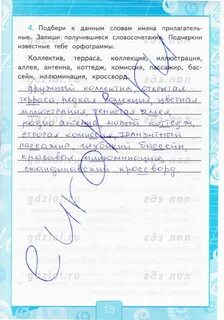 4. Подбери к данным словам имена прилагатель-
ные. Запиши получившиеся словосочетания. Подчеркни
известные тебе орфограммы.
Коллектив, терраса, коллекция, иллюстрация,
аллея, антенна, коттедж, комиссия, пассажир, бас-
сейн, иллюминация, кроссворд.
дружный коллектив, открытая
терраса, редкая коллекция, цветная
иллюстрация, тенистая аллея
радио антенна, новый коттедж,
строгая комиссия, транзитный
пассажир, глубокий бассейн,
красивая иллюминация,
скандинавский кроссворд
gdzlol.ru
15